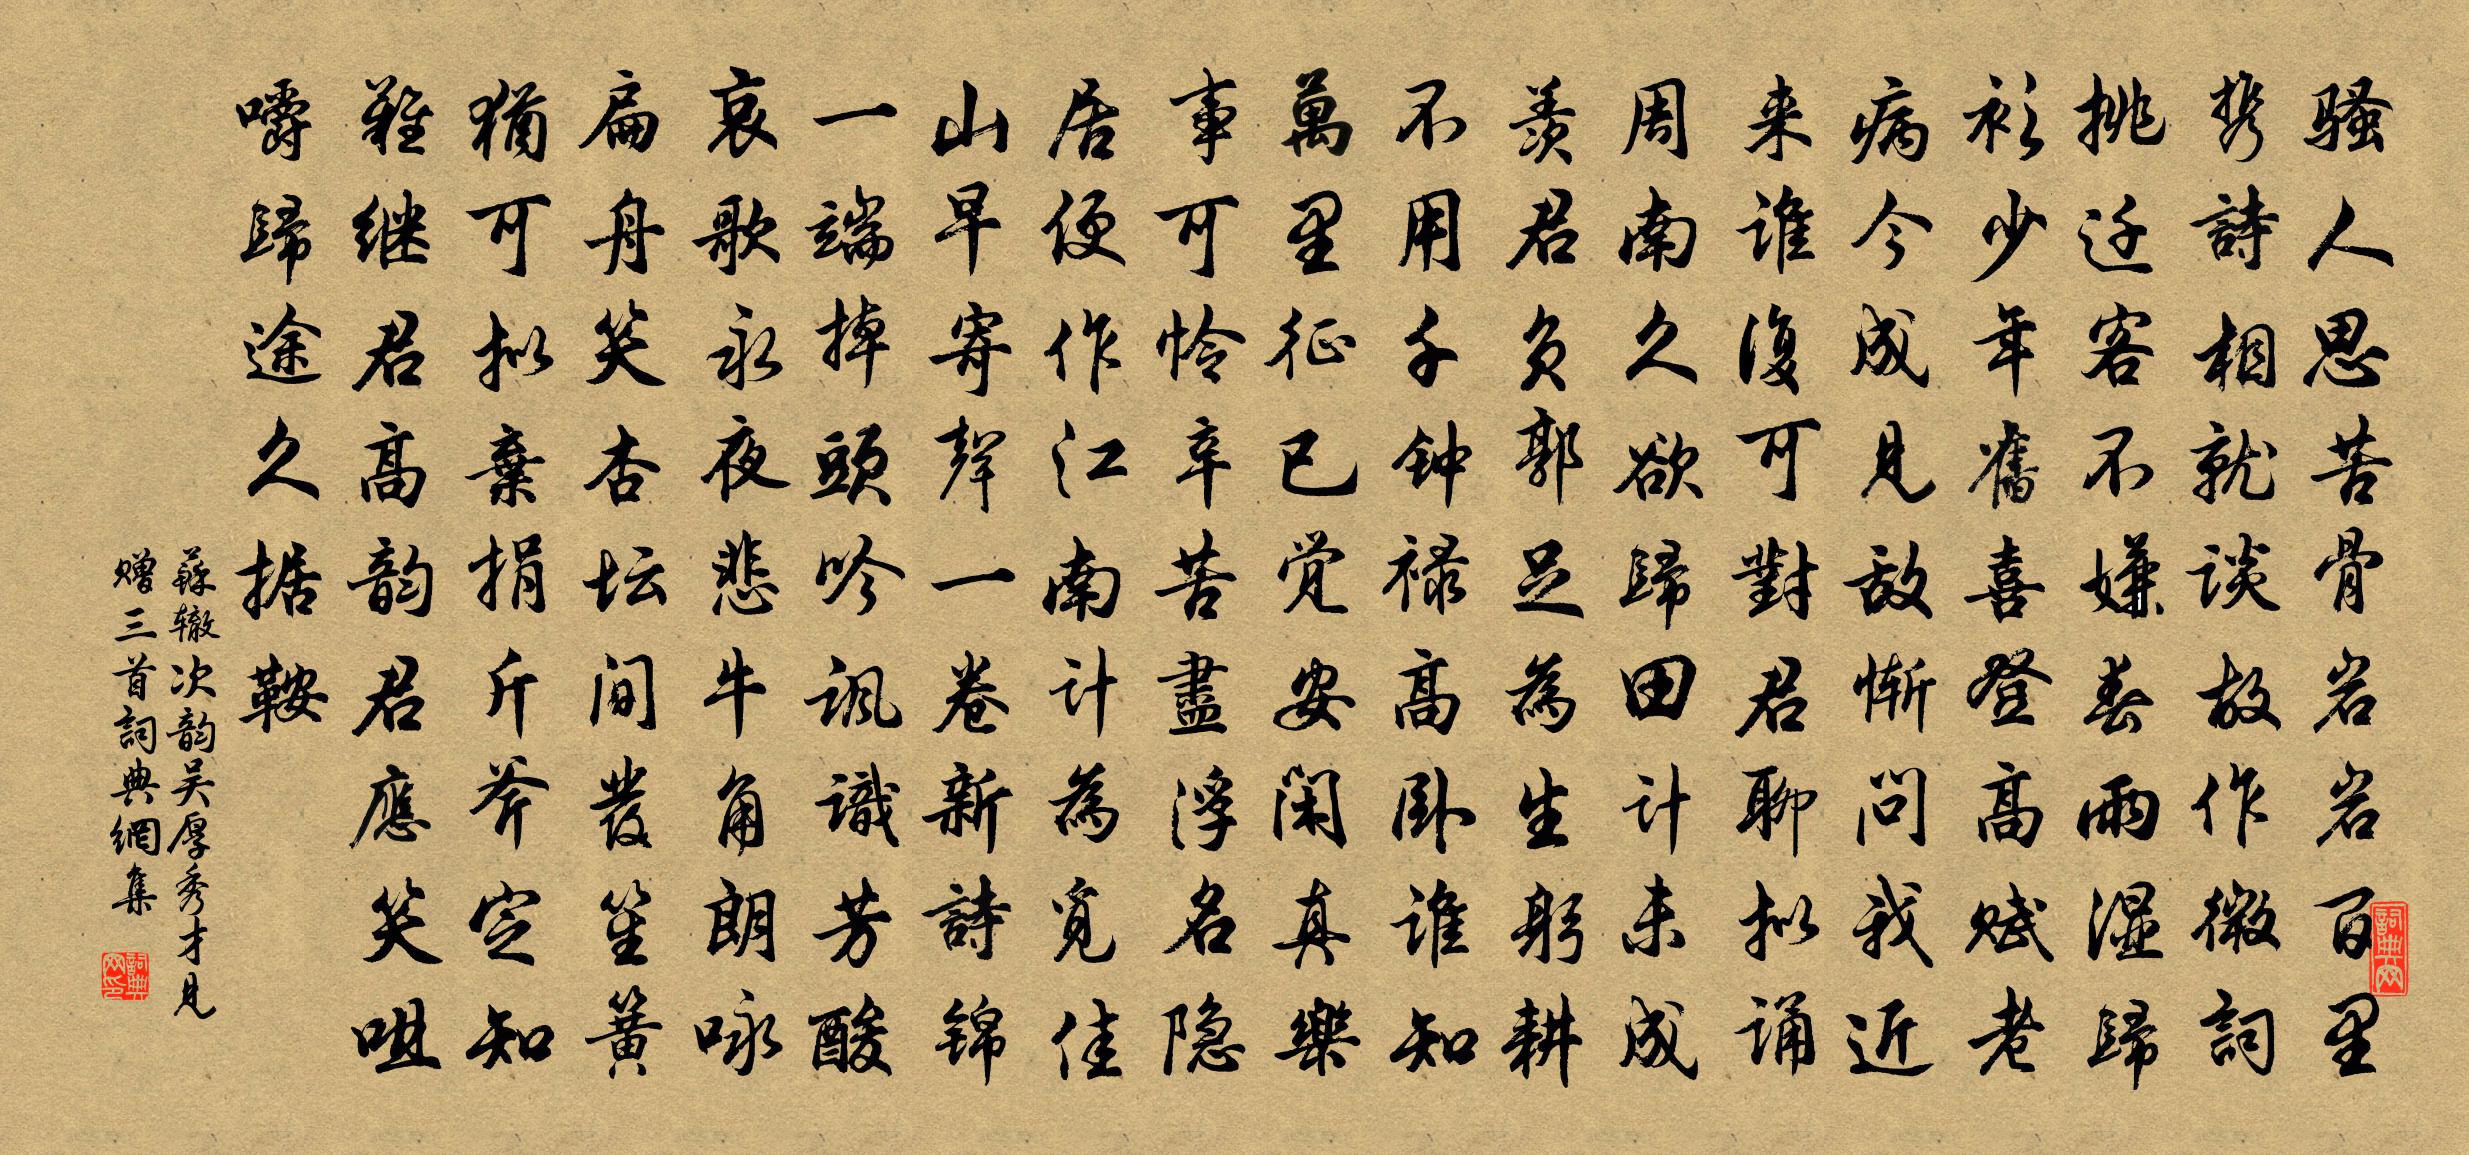 骚人思苦骨岩岩百里
携詩相就谈故作微詞
挑迁客不嫌春雨湿歸
衫少年舊喜登高赋老
病今成見敌惭问我近
来谁復可對君聊拟诵
周南久欲歸田计未成
羡君负郭足為生躬耕
不用千钟禄高卧谁知
萬里征已觉安闲真樂
事可怜辛苦盡浮名隐
居便作江南计為觅佳
山早寄聲一卷新詩锦
一端掉頭吟讽識芳酸
哀歌永夜悲牛角朗咏
扁舟笑杏坛间發笙簧
猶可拟棄捐斤斧定知
難继君高韵君應笑咀
嚼歸途久据鞍
蘇辙次韵吴厚秀才見
赠三首詞典網集
詞典网
詞典网印